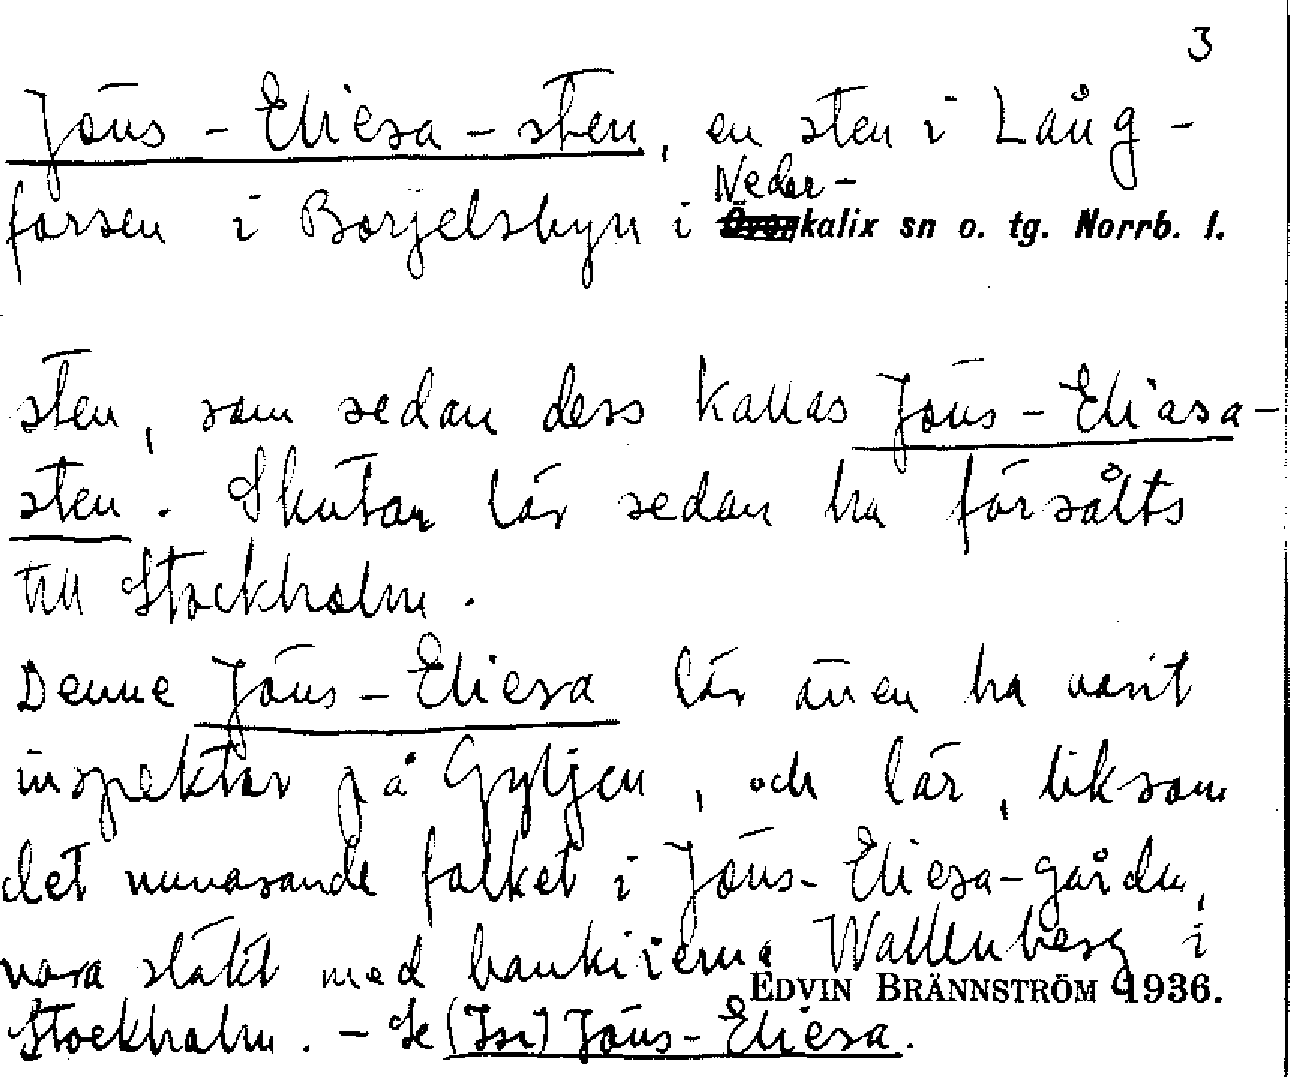 3
Jöns-Eliesa-sten, en sten i Lång-
forsen i Börjelsbyn i Neder-kalix sn o. tg. Norrb. l.
sten, som sedan dess kallas Jöns-Eliasa-
sten. Skutan lär sedan ha försålts
till Stockholm.
Denne Jöns-Eliesa lär även ha varit
inspektor på Gyljen, och lär, liksom
det nuvarande folket i Jöns-Eliesa-gården,
vara släkt med bankirerna Wallenberg i
EDVIN BRÄNNSTRÖM 1936.
Stockholm. - Se (Isr) Jöns-Eliesa.